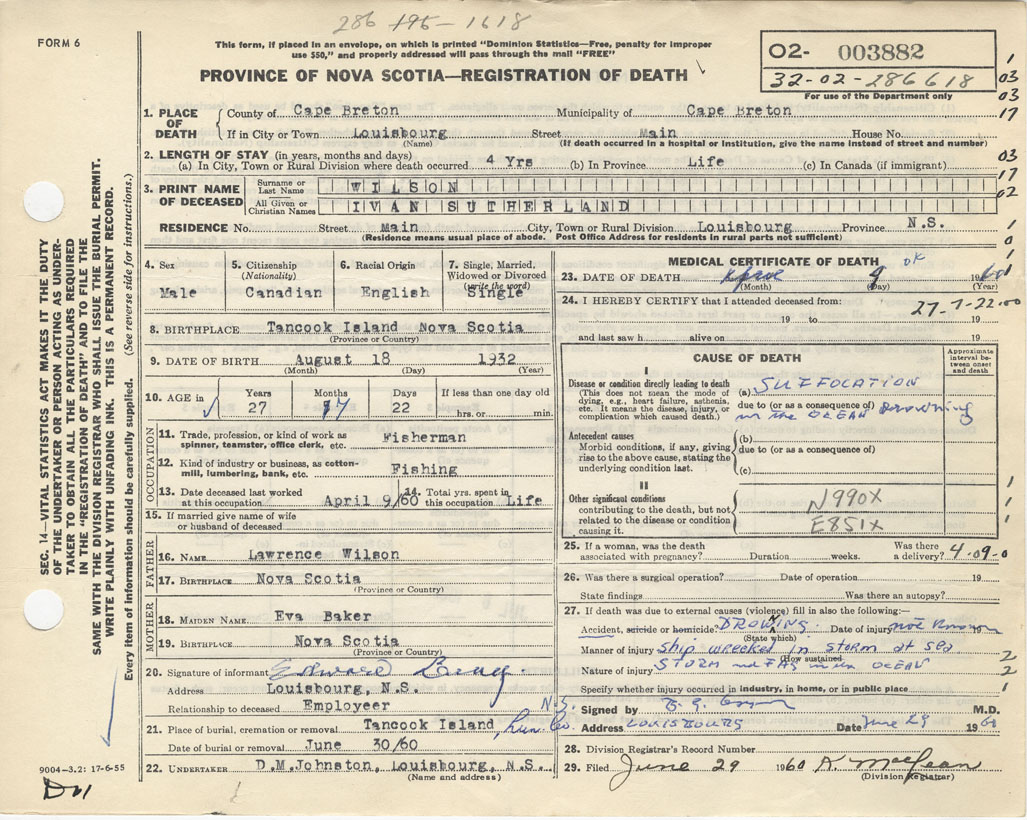 286 195-1618
FORM 6
This form, if placed in an envelope, on which is printed "Dominion Statistics—Free, penalty for improper
use $50," and properly addressed will pass through the mail "FREE"
PROVINCE OF NOVA SCOTIA—REGISTRATION OF DEATH
02- 003882
32-02-286618
For use of the Department only
1. PLACE OF DEATH
County of Cape Breton Municipality of Cape Breton
If in City or Town Louisbourg Street Main House No.
(Name) (If death occurred in a hospital or institution, give the name instead of street and number)
2. LENGTH OF STAY (in years, months and days)
(a) In City, Town or Rural Division where death occurred 4 Yrs (b) In Province Life (c) In Canada (if immigrant)
3. PRINT NAME OF DECEASED
Surname or Last Name WILSON
All Given or Christian Names IVAN SUTHERLAND
RESIDENCE No. Street Main City, Town or Rural Division Louisbourg Province N.S.
(Residence means usual place of abode. Post Office Address for residents in rural parts not sufficient)
1
03
03
17
03
17
02
1
0
1
SEC. 14—VITAL STATISTICS ACT MAKES IT THE DUTY
OF THE UNDERTAKER OR PERSON ACTING AS UNDER-
TAKER TO OBTAIN ALL THE PARTICULARS REQUIRED
IN THE "REGISTRATION OF DEATH" AND TO FILE THE
SAME WITH THE DIVISION REGISTRAR WHO SHALL ISSUE THE BURIAL PERMIT.
WRITE PLAINLY WITH UNFADING INK. THIS IS A PERMANENT RECORD.
Every item of information should be carefully supplied. (See reverse side for instructions.)
4. Sex
Male
5. Citizenship
(Nationality)
Canadian
6. Racial Origin
English
7. Single, Married,
Widowed or Divorced
(write the word)
Single
8. BIRTHPLACE Tancook Island Nova Scotia
(Province or Country)
9. DATE OF BIRTH August 18 1932
(Month) (Day) (Year)
10. AGE in
Years Months Days If less than one day
27 22 hrs. or min.
OCCUPATION
11. Trade, profession, or kind of work as Fisherman
spinner, teamster, office clerk, etc.
12. Kind of industry or business, as cotton- Fishing
mill, lumbering, bank, etc.
13. Date deceased last worked
at this occupation April 9/60
14. Total yrs. spent in
this occupation Life
15. If married give name of wife
or husband of deceased
FATHER
16. NAME Lawrence Wilson
17. BIRTHPLACE Nova Scotia
(Province or Country)
MOTHER
18. MAIDEN NAME Eva Baker
19. BIRTHPLACE Nova Scotia
(Province or Country)
20. Signature of informant Edward
Address Louisbourg, N.S.
Relationship to deceased Employeer
21. Place of burial, cremation or removal Tancook Island Lun. Co. N.S.
Date of burial or removal June 30/60
22. UNDERTAKER D.M.Johnston, Louisbourg, N.S.
(Name and address)
9004-3.2: 17-6-55
MEDICAL CERTIFICATE OF DEATH OK
23. DATE OF DEATH April 9 1960
(Month) (Day) (Year)
24. I HEREBY CERTIFY that I attended deceased from:
19 to 19
and last saw h alive on 19
CAUSE OF DEATH
Approximate
interval between
onset
and death
I
Disease or condition directly leading to death
(This does not mean the mode of
dying, e.g., heart failure, asthenia,
etc. It means the disease, injury, or
complication which caused death.)
(a) SUFFOCATION
due to (or as a consequence of)
in the OCEAN Drowning
Antecedent causes
Morbid conditions, if any, giving
rise to the above cause, stating the
underlying condition last.
(b)
due to (or as a consequence of)
(c)
II
Other significant conditions
contributing to the death, but not
related to the disease or condition
causing it.
N990X
E851X
1
1
1
25. If a woman, was the death
associated with pregnancy? Duration weeks. Was there
a delivery? 4-09-0
26. Was there a surgical operation? Date of operation 19
State findings Was there an autopsy?
27. If death was due to external causes (violence) fill in also the following:—
Accident, suicide or homicide DROWING Date of injury not known 19
(State which)
Manner of injury ship wrecked in storm at sea 2
(How sustained)
Nature of injury STORM OCEAN 2
Specify whether injury occurred in industry, in home, or in public place 1
Signed by M.D.
Address LOUISBOURG Date June 29 1960
28. Division Registrar's Record Number
29. Filed June 29 1960 K. MacLean
(Division Registrar)